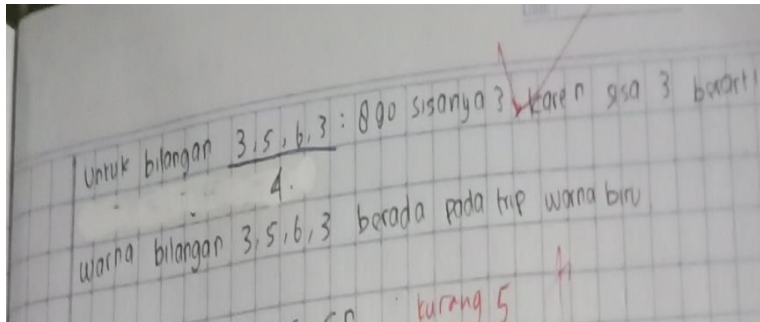 untuk bilangan 3,5,6,3 : 890 sisanya 3 karen sisa 3 berarti
4.
warna bilangan 3,5,6,3 berada pada trip warna biru
kurang 5